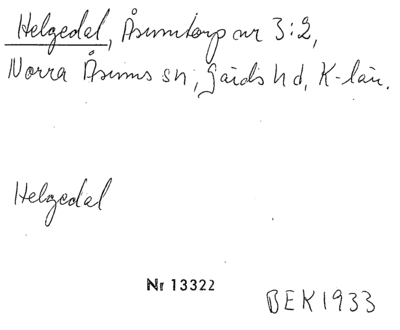 Helgedal, Åsumtorp nr 3:2,
Norra Åsums sn, Gärds hd, K-län.
Helgedal
Nr 13322
BEK 1933